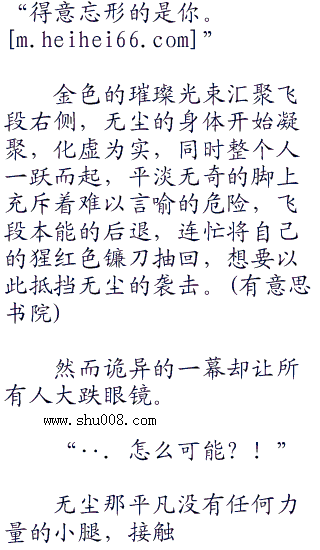 “得意忘形的是你。
[m.heihei66.com]”
金色的璀璨光束汇聚飞
段右侧，无尘的身体开始凝
聚，化虚为实，同时整个人
一跃而起，平淡无奇的脚上
充斥着难以言喻的危险，飞
段本能的后退，连忙将自己
的猩红色镰刀抽回，想要以
此抵挡无尘的袭击。(有意思
书院)
然而诡异的一幕却让所
有人大跌眼镜。
www.shu008.com
“··．怎么可能？！”
无尘那平凡没有任何力
量的小腿，接触